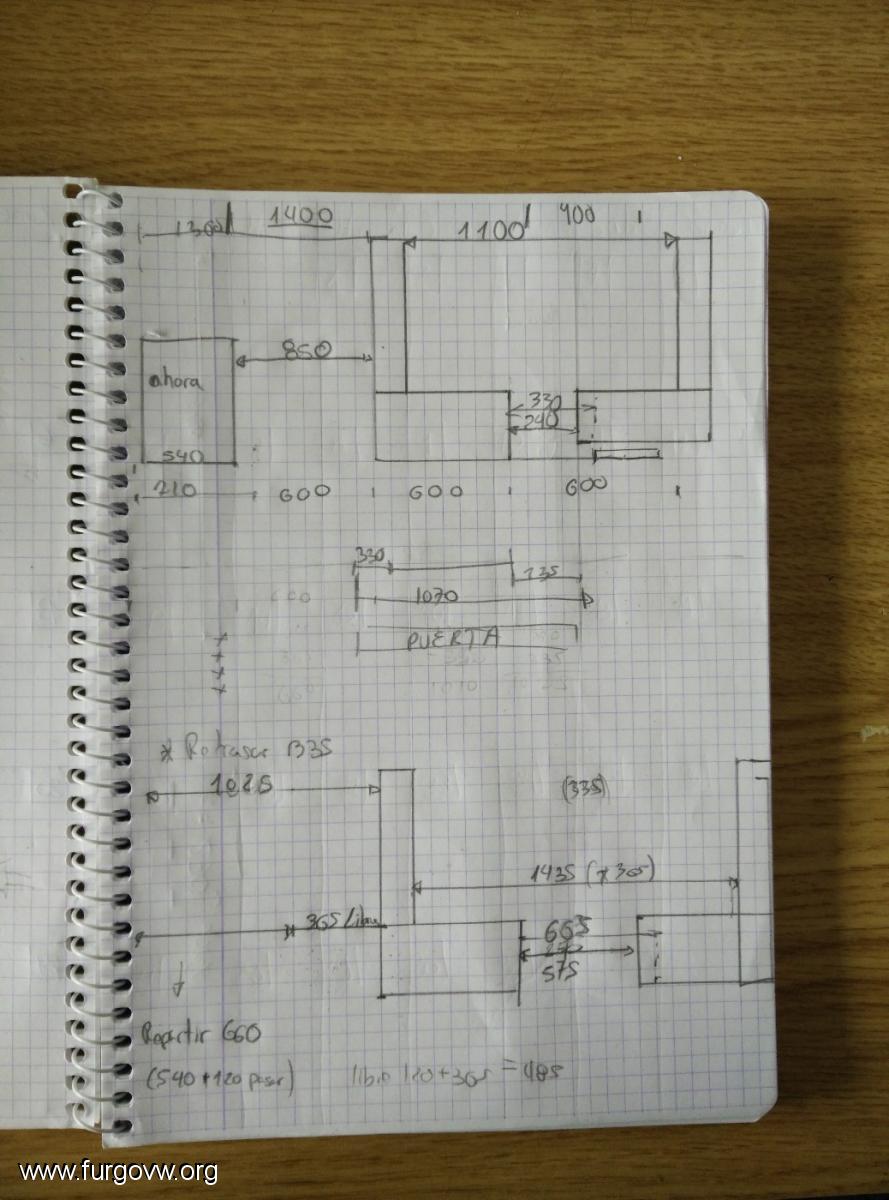 1300 1400 1100 400
850
ahora
330
240
540
210 600 600 600
330
135
1070
PUERTA
* Retrasar 335
1025
(335)
1435 (+305)
365 libre
665
575
Repartir 660
(540+120 pasar) libre 120+365=485
www.furgovw.org